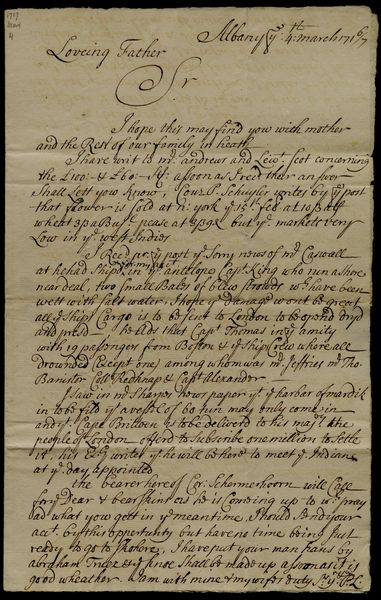 1717
Mar
4
Albany ye 4th: march 1716/7
Loveing Father
Sr
I hope this may find you with mother
and the Rest of our family in heath
I have writ to mr: andrews and Lewt: Scot concerning
the £100:- & £60:- As soon as I recd their answer
Shall Lett you Know; Cous P. Schuyler writes by ye post
that flower is Sold at n: york ye 15t: feb: at
wheat a Bush: pease at but ye markets very
Low in ye west Indies
I Recd pr: ye post ye Sorry news of mr Caswall
at he had Shipt in ye antelope Capt King who run a Shore
near deal, two Small Bales of blew strouds wch have been
wett with salt water, I hope ye damage wont be great
all ye Ships Cargo is to be sent to London to be opend dryd
and he adds that Capt Thomas in ye amity
with 19 passengers from Boston & ye Ships Crew where all
drownded Except one, among whom was mr Jeffries mr Tho:
Banistor Coll Redknap & Capt Alexander
I saw in mr Sharpas news paper yt ye harbor of mardik
in to be fild yt a vessel of 60 tun may only come in
and yt Cape Brittoen is to be deliverd to his majt: the
people of London offerd to Subscribe one million to Settle
it, his Excy writes yt he will be here to meet ye Indians
at ye day appointed
the bearer hereof Cor: Schermerhoorn will Call
for ye Dear & bear Skins as he is Comeing up to wch pray
ad what you gett in ye meantime, I Should Send your
acct: by this oppertunity but have no time being Just
ready to go to Skohere, I have put your man hans by
abraham Truax & ye Knoe Shall be made up as soon as it is
good wheather. I am with mine & my wifes duty Sr: yrs P:L